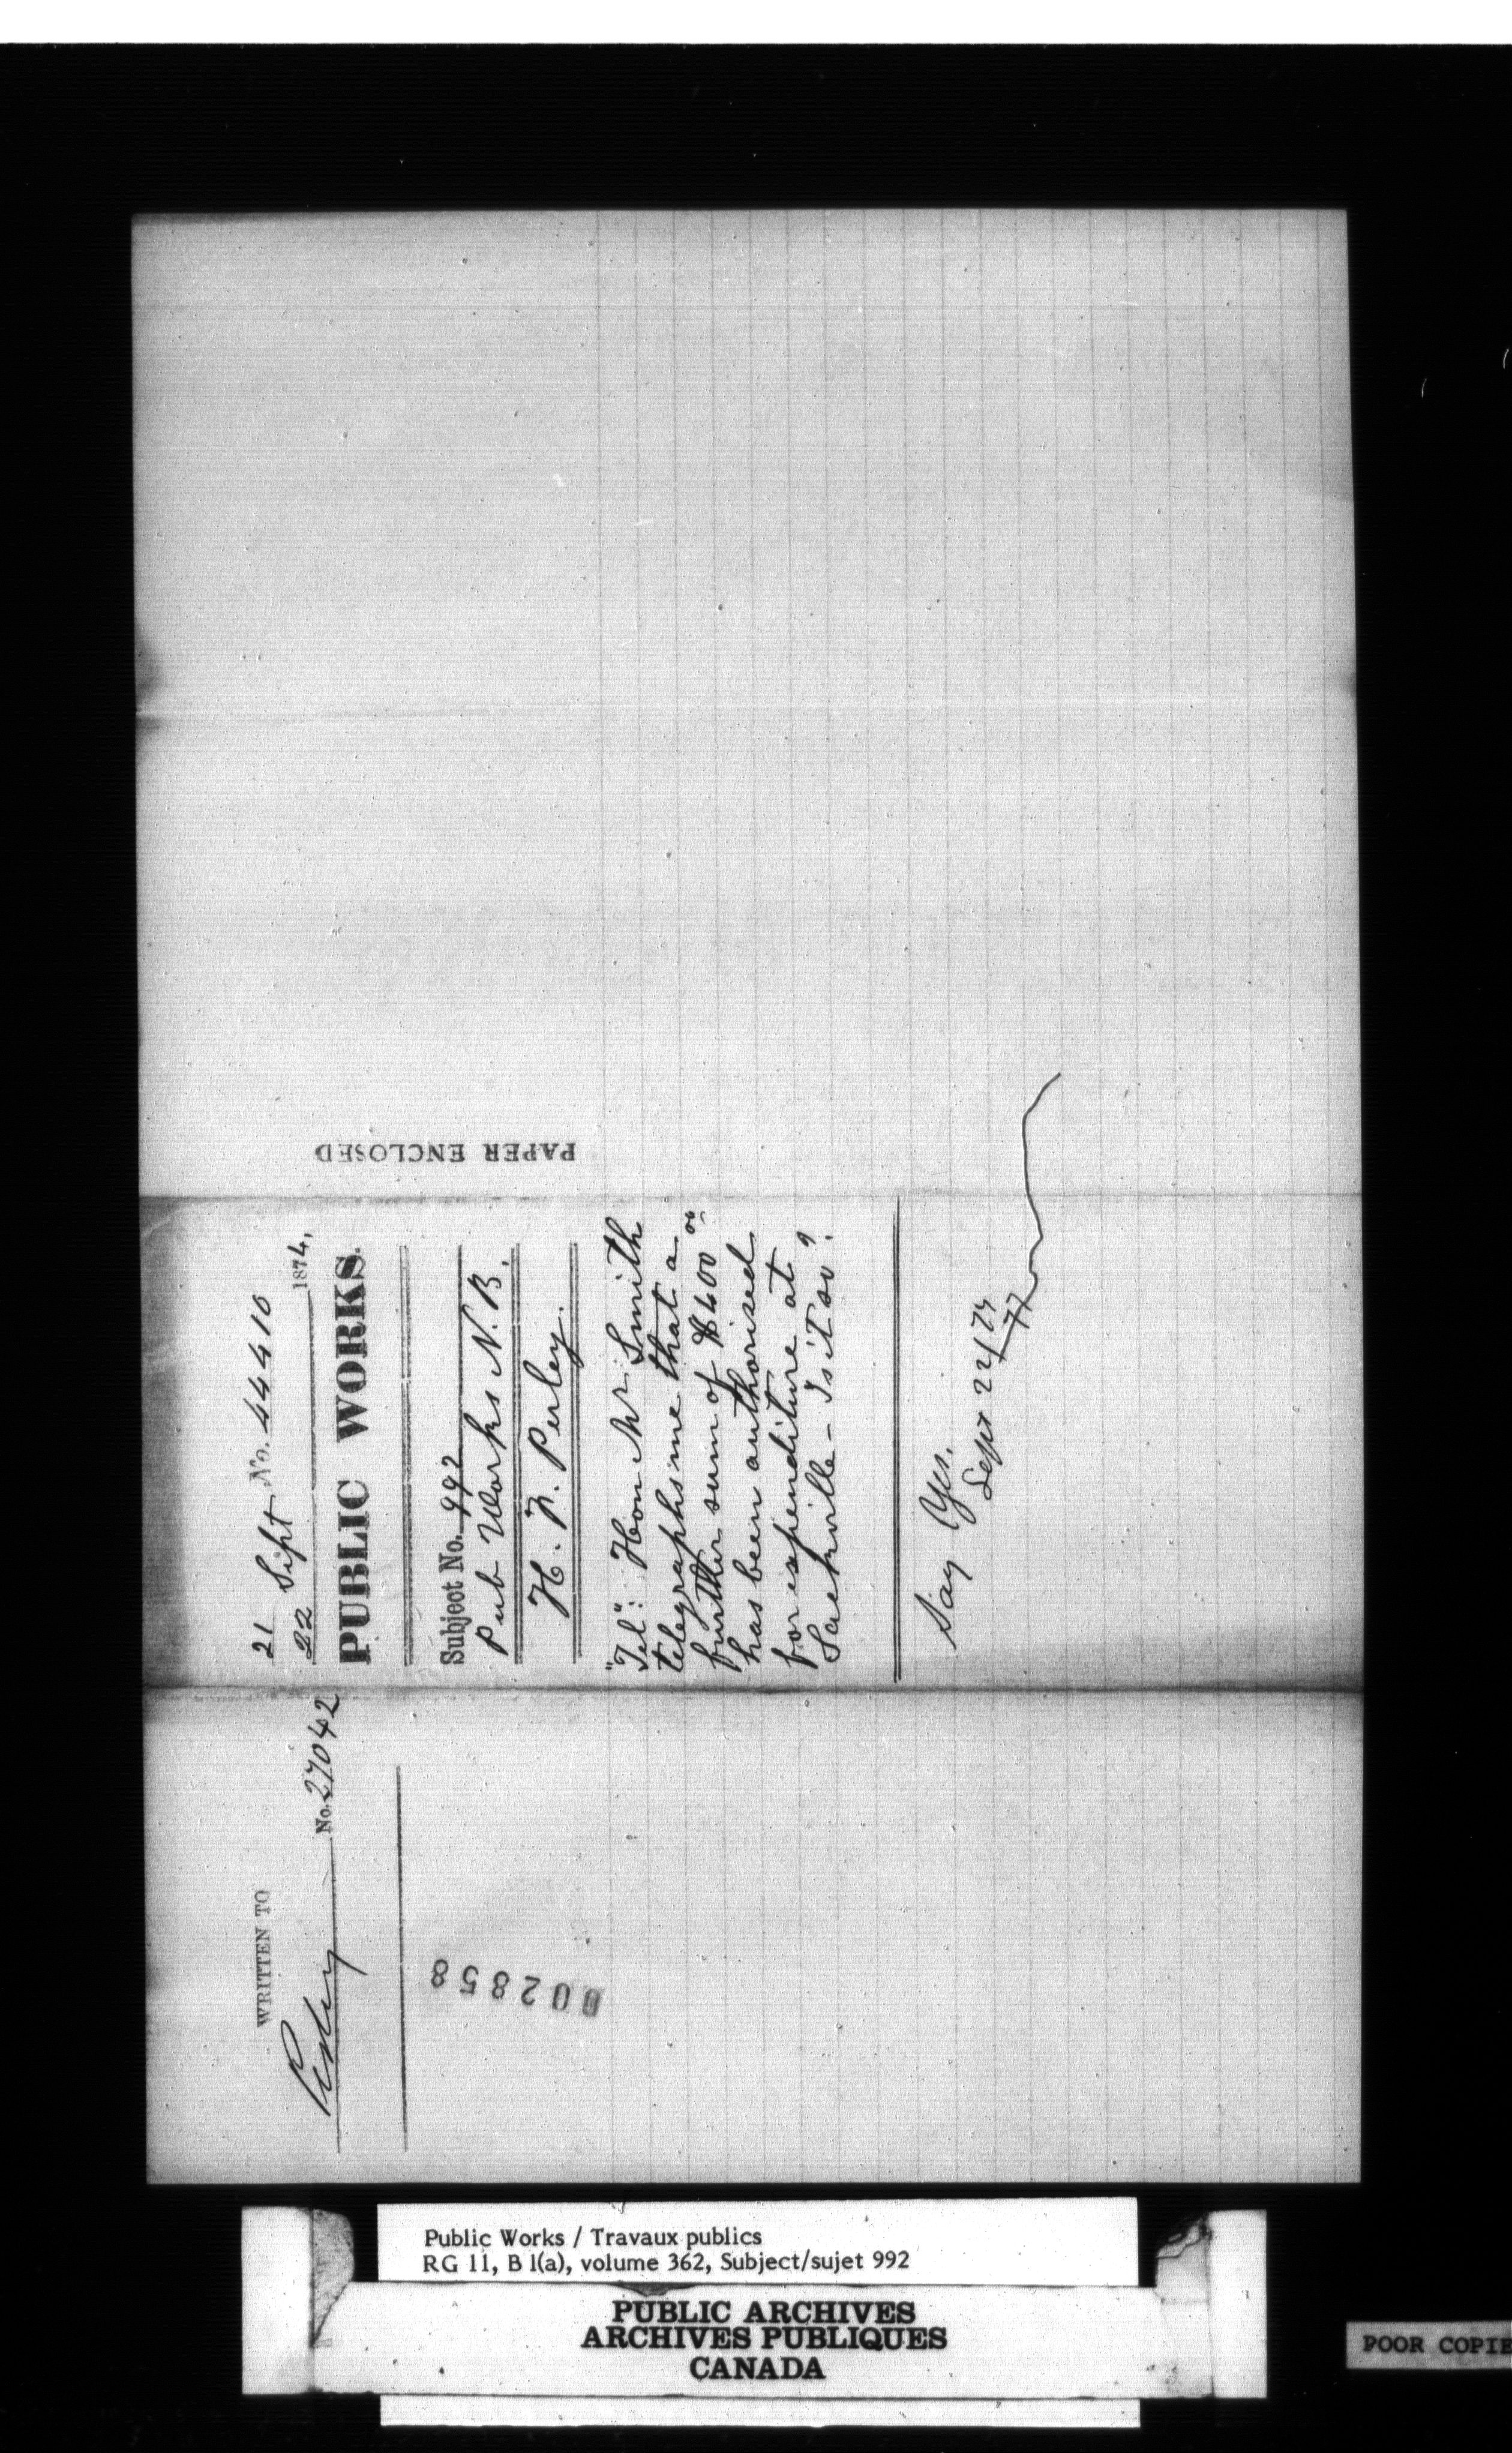 WRITTEN TO
Perley No. 27042
002858
21
22 Sept No. 44410 1874,
PUBLIC WORKS.
Subject No. 992
Pub Works N. B.
H. F. Perley.
"Tel": Hon Mr Smith
telegraphs me that a
further sum of $400 00
has been authorised
for expenditure at
Sackville - Is it so?
Say Yes.
Sept 22/74
PAPER ENCLOSED
Public Works / Travaux publics
RG 11, B 1(a), volume 362, Subject/sujet 992
PUBLIC ARCHIVES
ARCHIVES PUBLIQUES
CANADA
POOR COPIE